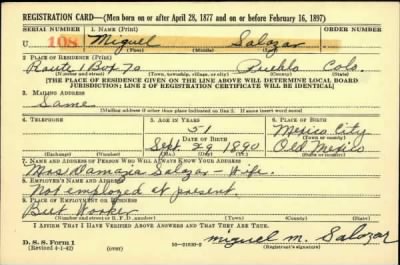 REGISTRATION CARD—(Men born on or after April 28, 1877 and on or before February 16, 1897)
SERIAL NUMBER 1. NAME (Print) ORDER NUMBER
U 108 Miguel Salazar
(First) (Middle) (Last)
2. PLACE OF RESIDENCE (Print)
Route 1 Box 70 Pueblo Colo.
(Number and street) (Town, township, village, or city) (County) (State)
[THE PLACE OF RESIDENCE GIVEN ON THE LINE ABOVE WILL DETERMINE LOCAL BOARD
JURISDICTION; LINE 2 OF REGISTRATION CERTIFICATE WILL BE IDENTICAL]
3. MAILING ADDRESS
Same
[Mailing address if other than place indicated on line 2. If same insert word same]
4. TELEPHONE 5. AGE IN YEARS 6. PLACE OF BIRTH
51 Mexico City
DATE OF BIRTH (Town or county)
Sept. 29 1890 Old Mexico
(Exchange) (Number) (Mo.) (Day) (Yr.) (State or country)
7. NAME AND ADDRESS OF PERSON WHO WILL ALWAYS KNOW YOUR ADDRESS
Mrs Damazia Salazar – Wife.
8. EMPLOYER'S NAME AND ADDRESS
Not employed at present.
9. PLACE OF EMPLOYMENT OR BUSINESS
Beet Worker
(Number and street or R. F. D. number) (Town) (County) (State)
I AFFIRM THAT I HAVE VERIFIED ABOVE ANSWERS AND THAT THEY ARE TRUE.
D. S. S. Form 1
(Revised 4-1-42) (over) 16—21630-2 Miguel M. Salazar
(Registrant's signature)